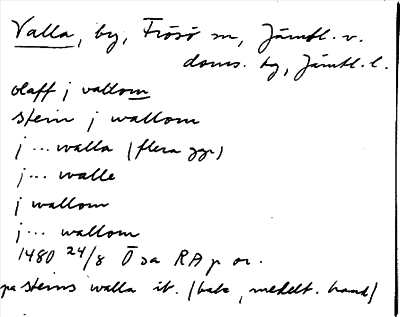 Valla, by, Frösö sn, Jämtl. v.
doms. tg, Jämtl. l.
olaff j vallom
stein j wallom
j ... walla (flera ggr)
j ... walle
j wallom
j ... wallom
1480 24/8 Ö sa RAp or.
pa steins walla it. (baks, medelt. hand)